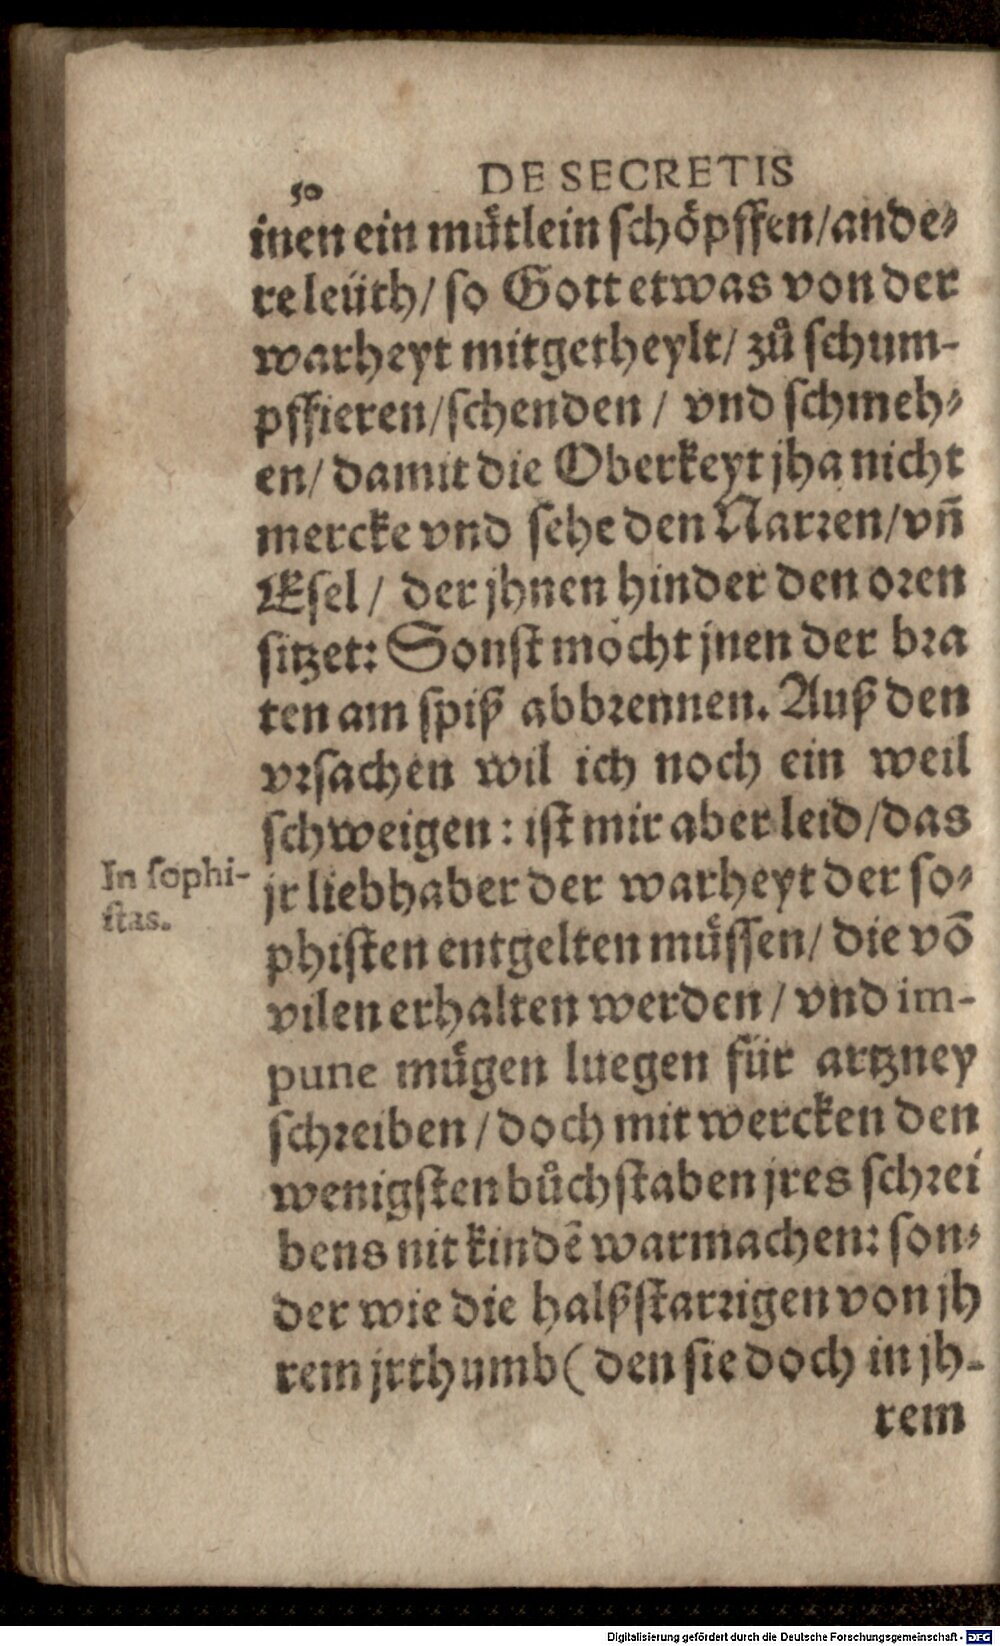 50
DE SECRETIS
inen ein muͤtlein schoͤpffen/ande⸗
re leüth/ so Gott etwas von der
warheyt mitgetheylt/ zuͦ schum-
pffieren/schenden / vnd schmeh⸗
en/ damit die Oberkeyt jha nicht
mercke vnd sehe den Narren/vñ
Esel / der jhnen hinder den oren
sitzet: Sonst moͤcht jnen der bra
ten am spiß abbrennen. Auß den
vrsachen wil ich noch ein weil
schweigen: ist mir aber leid/das
In sophi-
stas.
jr liebhaber der warheyt der so⸗
phisten entgelten muͤssen/ die võ
vilen erhalten werden / vnd im-
pune muͤgen luegen für artzney
schreiben / doch mit wercken den
wenigsten buͦchstaben jres schrei
bens nit kindẽ warmachen: son⸗
der wie die halßstarrigen von jh
rem jrthumb ( den sie doch in jh-
rem
Digitalisierung gefördert durch die Deutsche Forschungsgemeinschaft - DFG